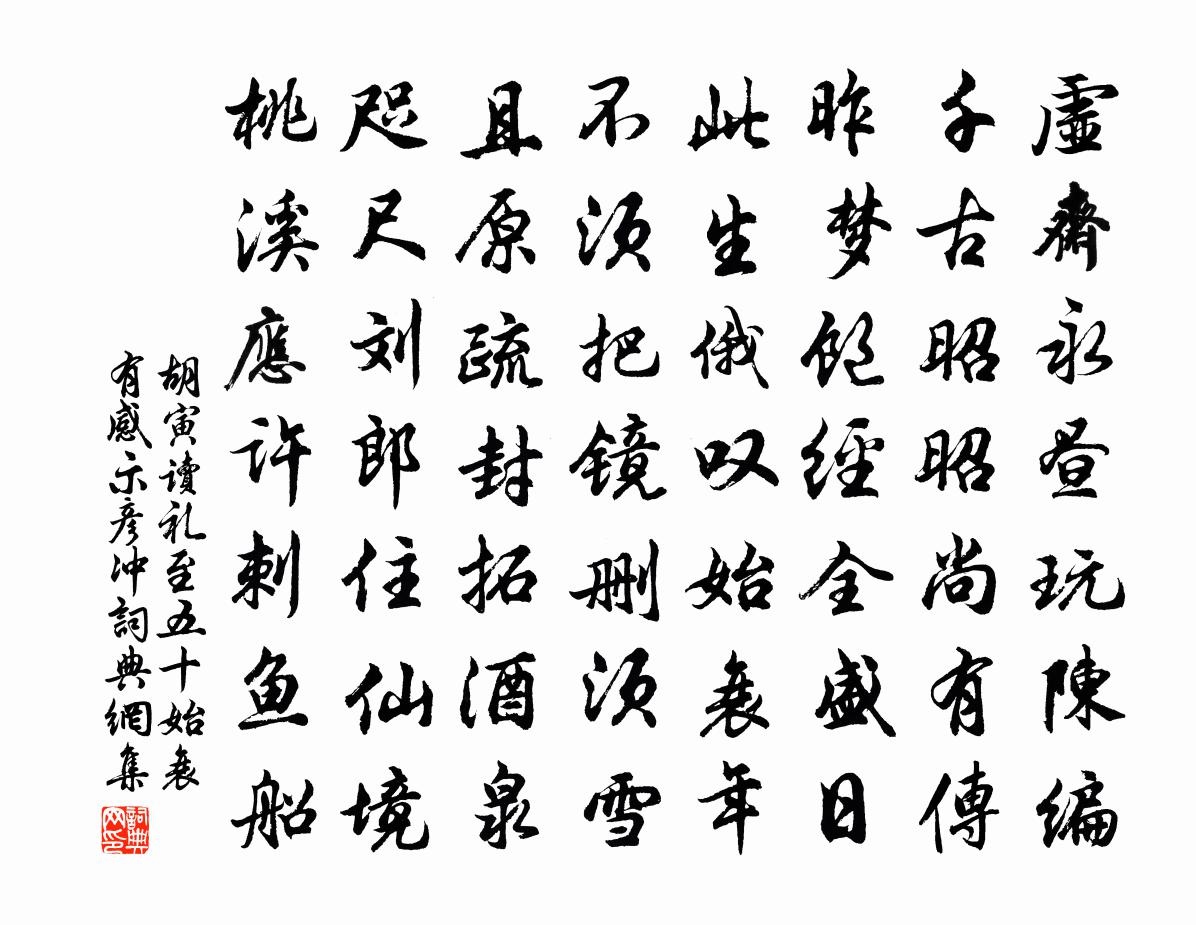 虚齋永昼玩陳编
千古昭昭尚有傳
昨梦饱經全盛日
此生俄叹始衰年
不须把镜删须雪
且原疏封拓酒泉
咫尺刘郎住仙境
桃溪應许刺鱼船
胡寅读礼至五十始衰
有感示彦冲詞典網集
詞典网印